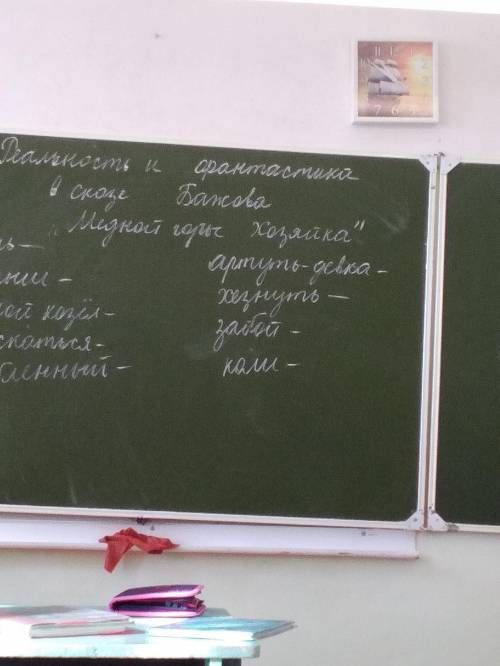 Реальность и фантастика
в сказе Бажова
"Медной горы Хозяйка"
ь-
ыш-
ой козёл-
скаться-
бленный-
артуть-девка-
хезнуть-
забой-
коли-